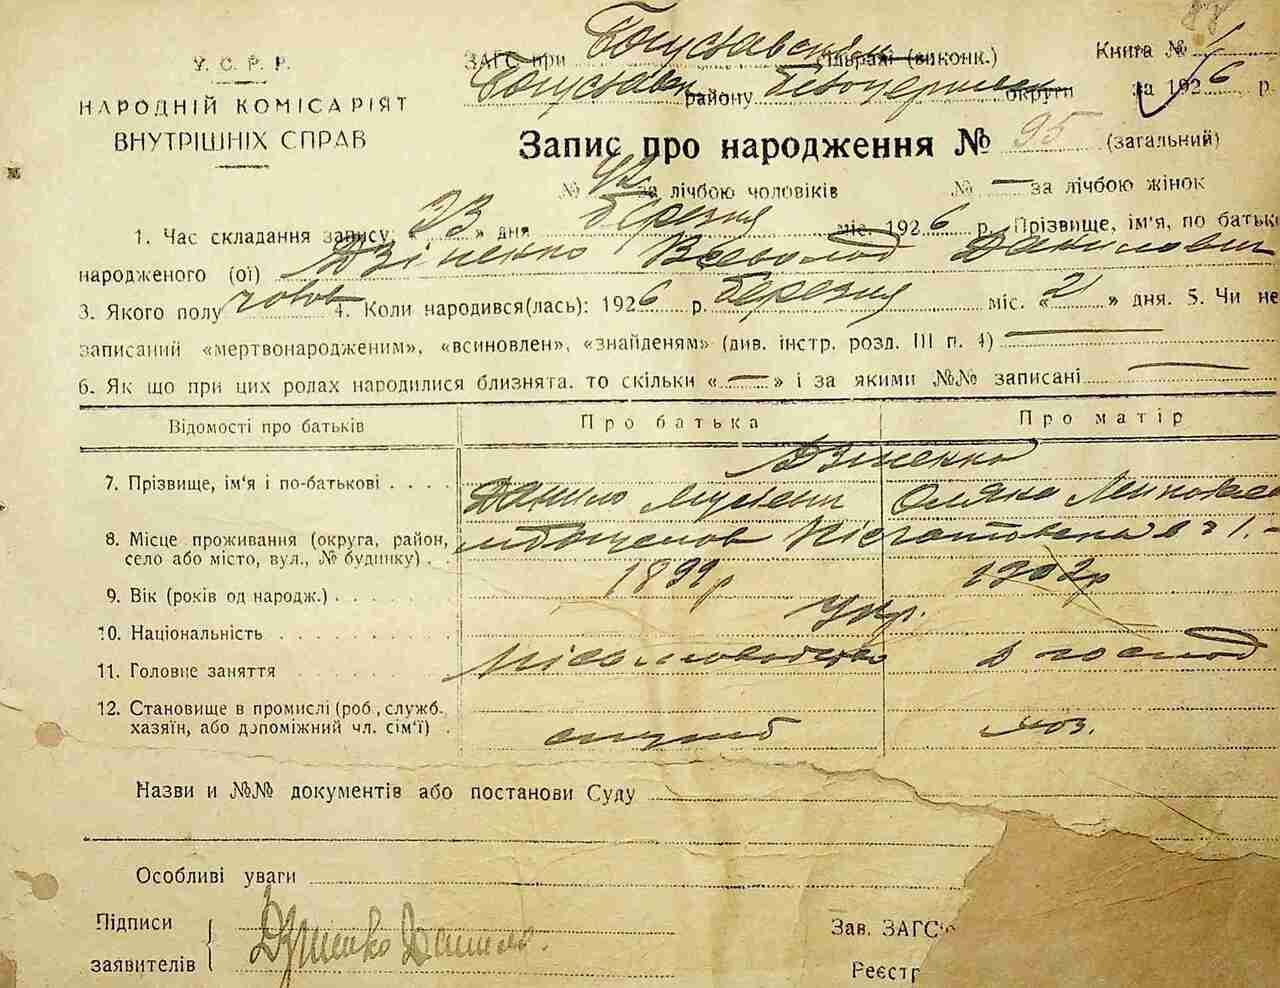 У. С. Р. Р.
НАРОДНІЙ КОМІСАРІЯТ
ВНУТРІШНІХ СПРАВ
ЗАГС при Богуславськім сільраді (виконк.)
Книга № 1
Богуславськ району Білоцерківськ округи
за 1926 р.
Запис про народження № 95 (загальний)
№ 42 за лічбою чоловіків № — за лічбою жінок
1. Час складання запису: «23» дня березня міс. 1926 р. Прізвище, ім'я, по батьк
народженого (ої) Дзіненко Всеволод Данилович
3. Якого полу чолов 4. Коли народився(лась): 1926 р. березня міс. «21» дня. 5. Чи не
записаний «мертвонародженим», «всиновлен», «знайденям» (див. інстр. розд. III п. 4) —
6. Як що при цих родах народилися близнята. то скільки «—» і за якими №№ записані —
Відомості про батьків Про батька Про матір
Дзіненко
7. Прізвище, ім'я і по-батькові . . . . Данило
8. Місце проживання (округа, район,
село або місто, вул., № будинку) . .
9. Вік (років од народж.) . . . . 1899 р 1902 р
10. Національність . . . . Укр.
11. Головне заняття . . . . в господ
12. Становище в промислі (роб., служб.
хазяїн, або допоміжний чл. сім'ї) . служб
Назви и №№ документів або постанови Суду
Особливі уваги
Підписи
заявителів
Данило.
Зав. ЗАГС'о
Реєстр